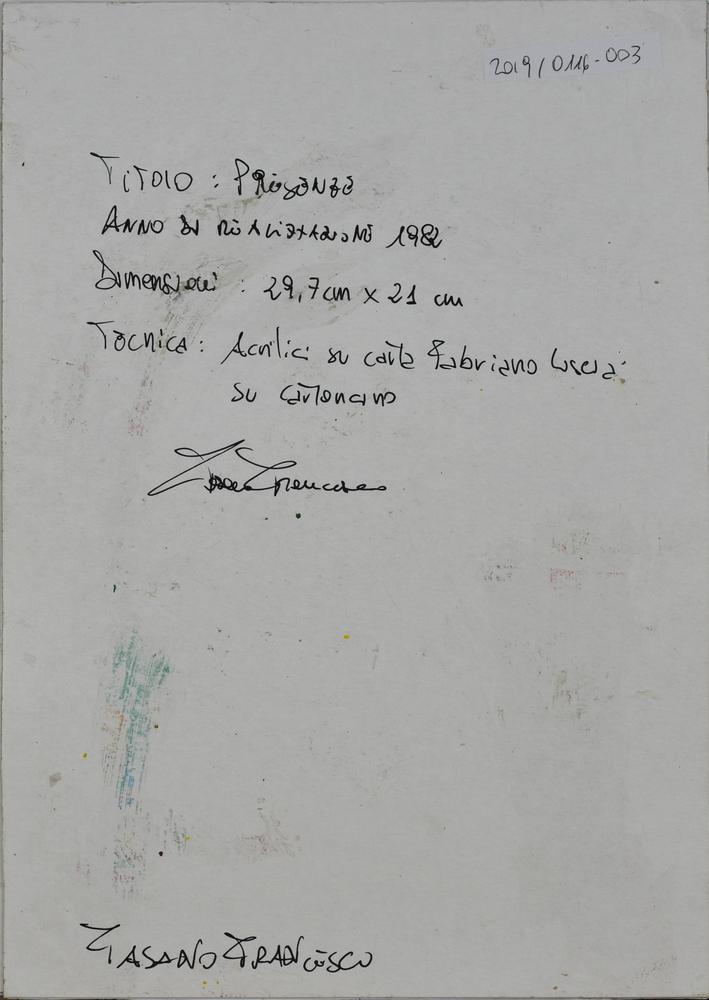 2019/0116-003
TITOLO : PRESENZE
ANNO DI REALIZZAZIONE 1982
Dimensioni : 29,7cm x 21 cm
Tecnica : Acrilici su carta Fabriano liscia
su cartoncino
Francesco
FASANO FRANCESCO